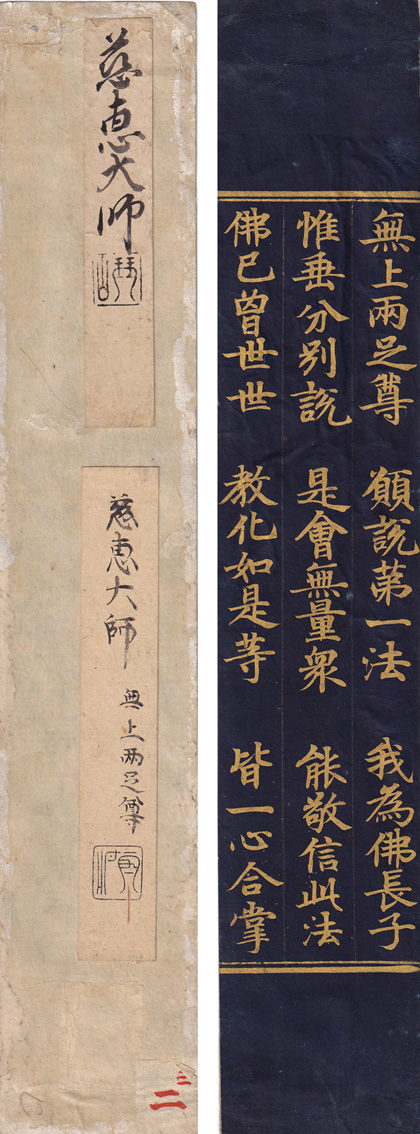 慈恵大師
慈恵大師
無上両足尊
三
二
無上兩足尊 願說第一法 我為佛長子
惟垂分別說 是會無量衆 能敬信此法
佛已曽世世 教化如是等 皆一心合掌